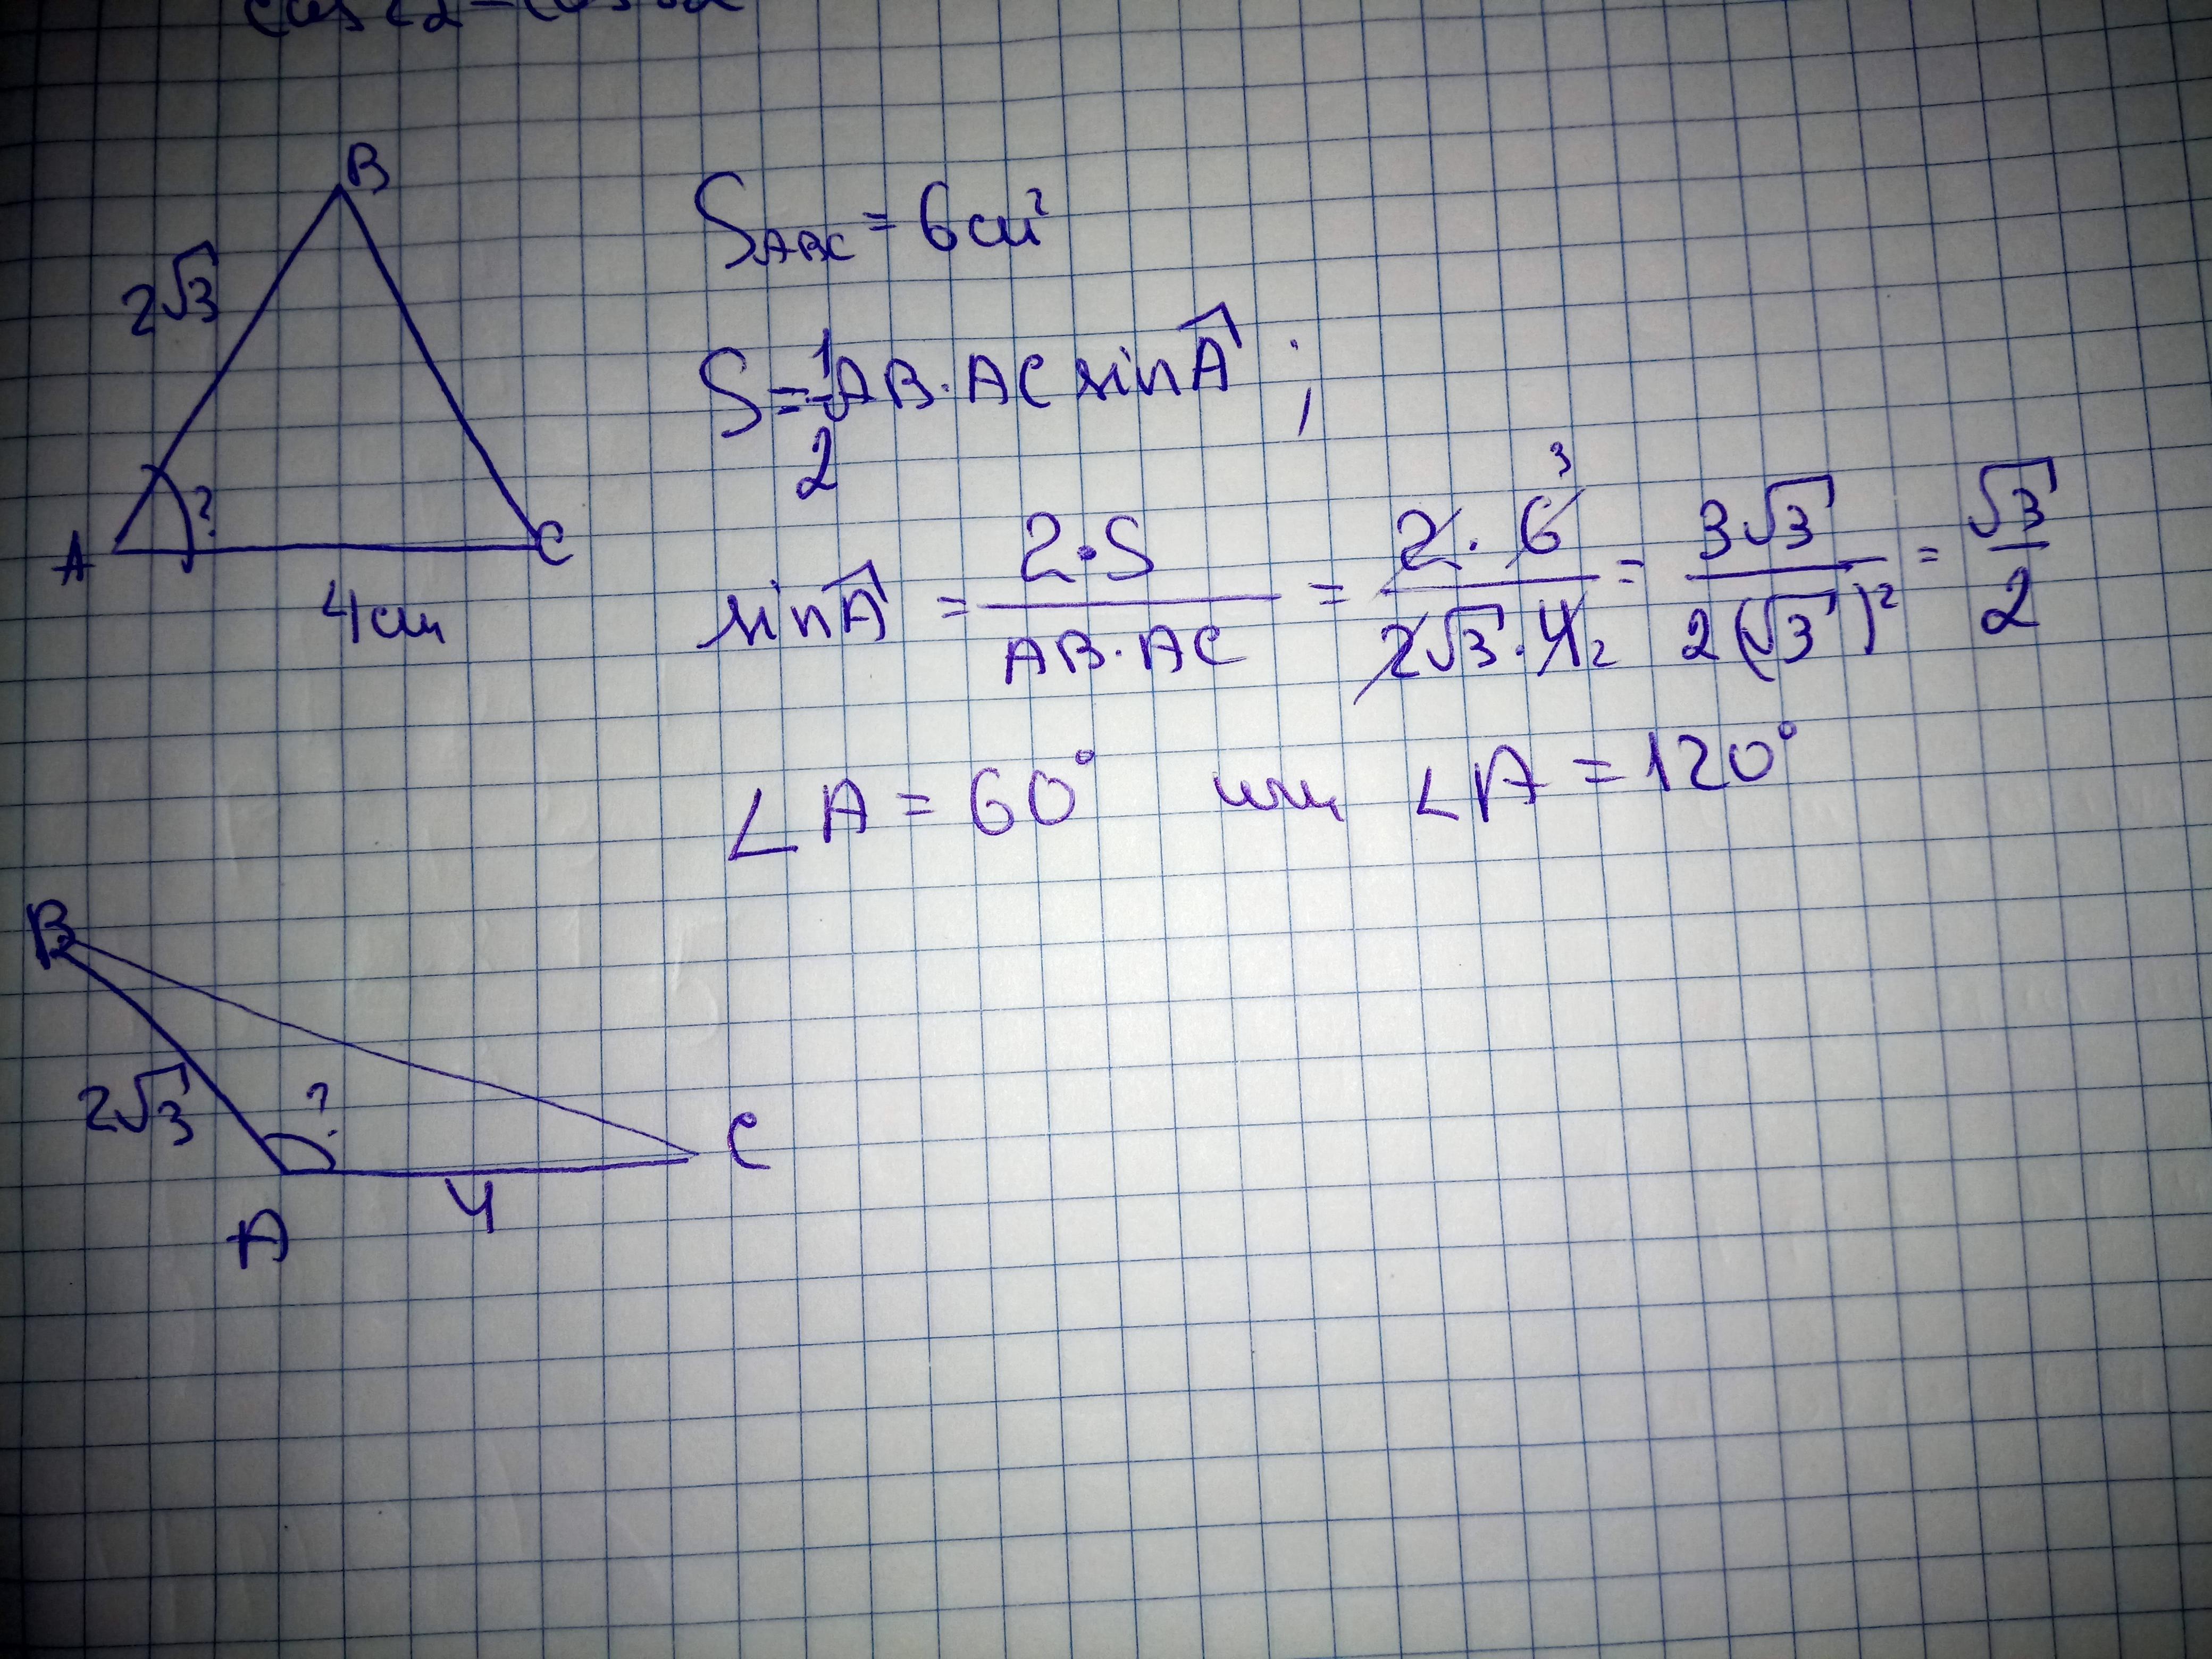 B
2√3
A
?
C
4см
S_ABC = 6см²
S = 1/2 AB · AC sin A ;
sin A = 2·S / AB·AC = 2·6 3 / 2√3·4 2 = 3√3 / 2(√3)² = √3 / 2
∠A = 60° или ∠A = 120°
B
2√3
?
C
A
4